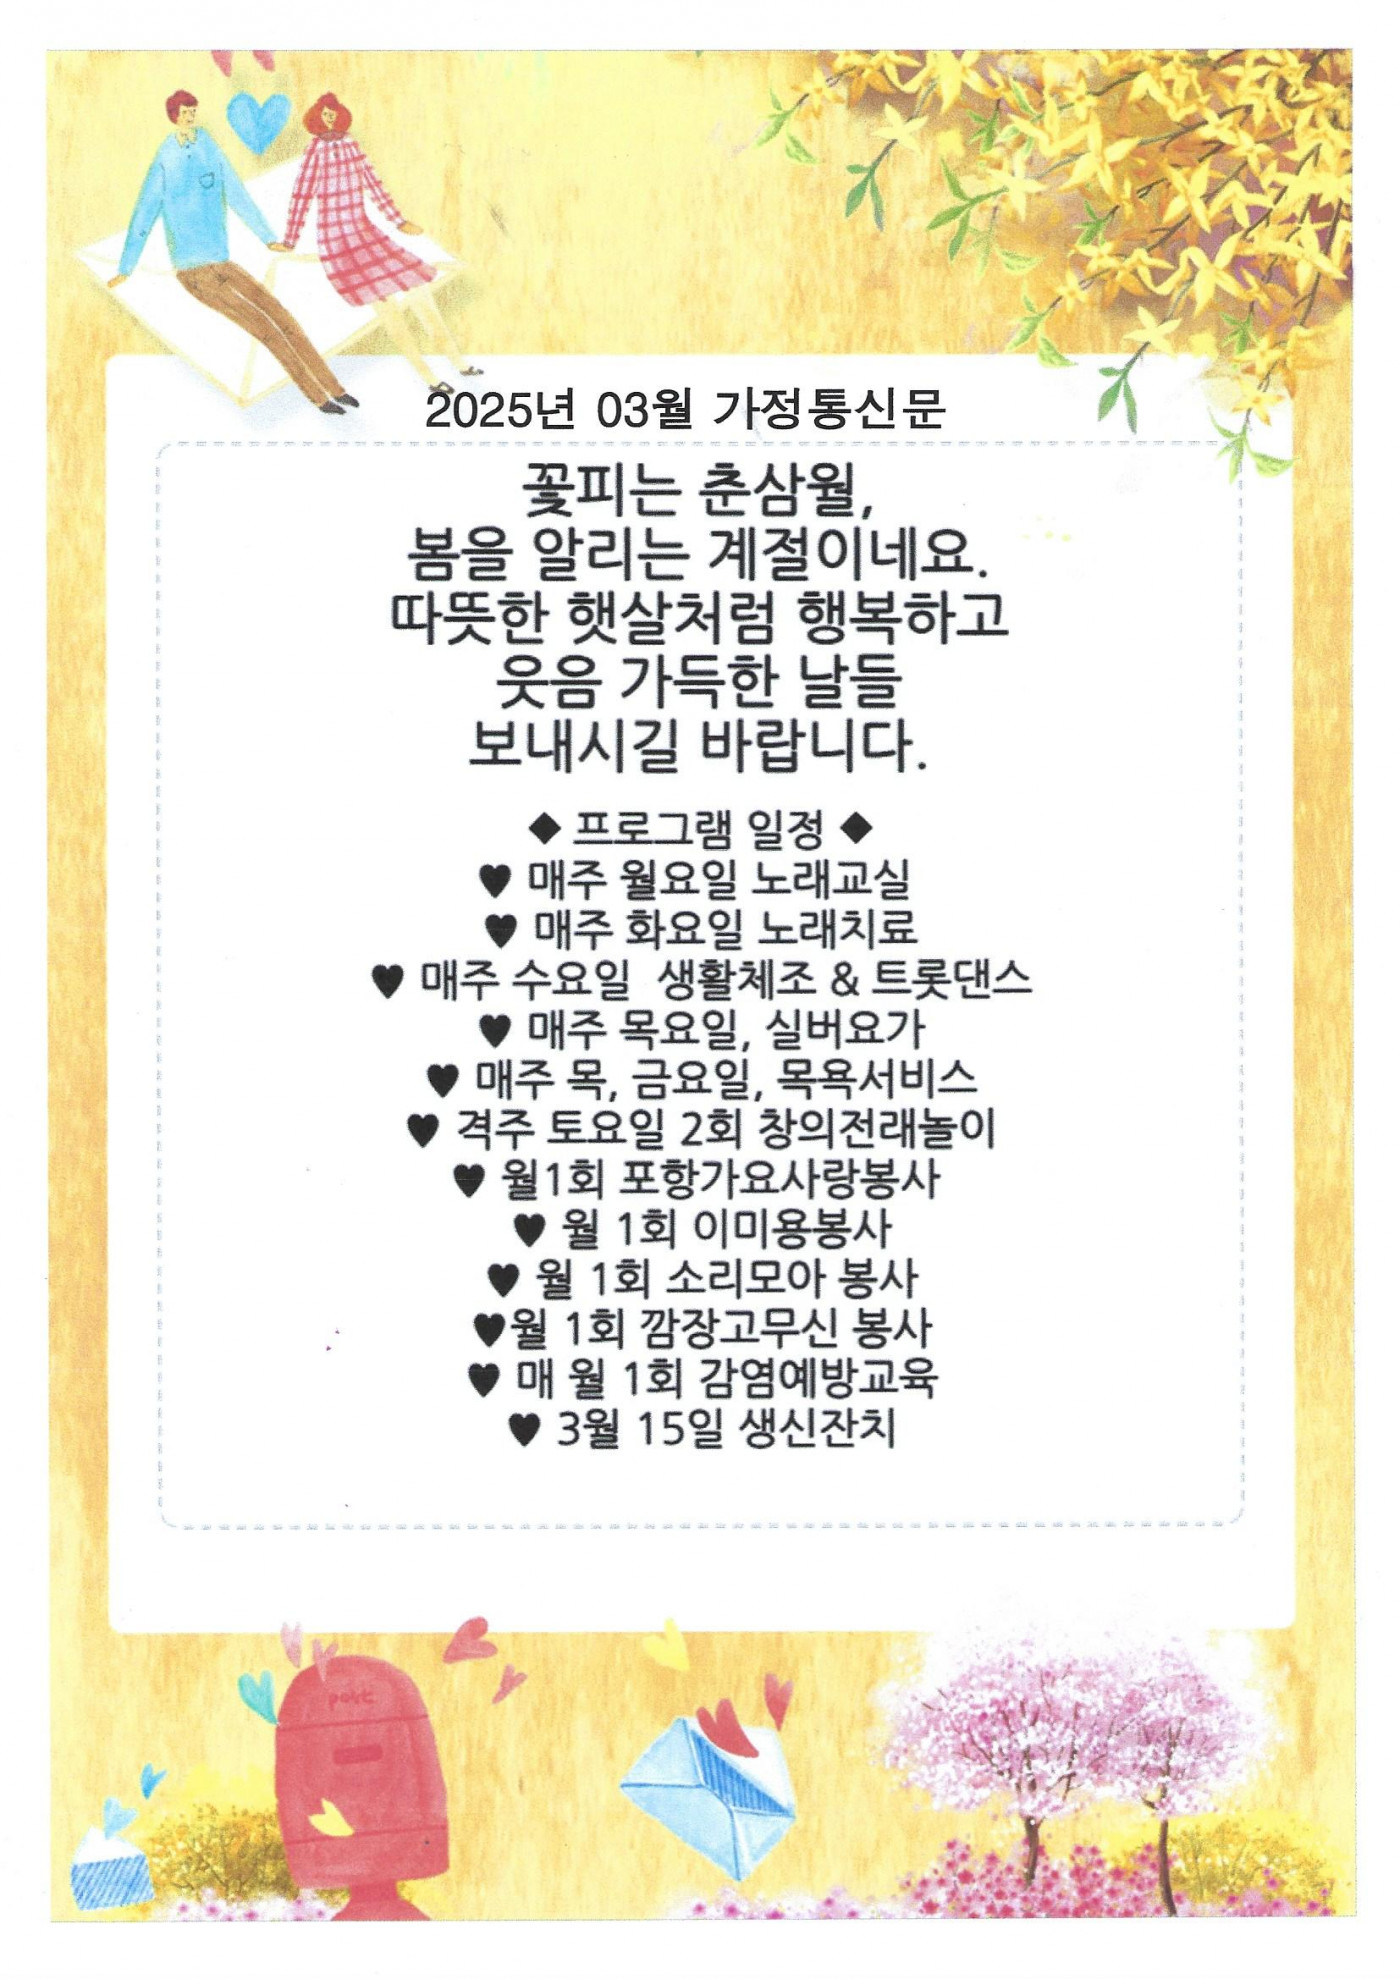 2025년 03월 가정통신문
꽃피는 춘삼월,
봄을 알리는 계절이네요.
따뜻한 햇살처럼 행복하고
웃음 가득한 날들
보내시길 바랍니다.
◆ 프로그램 일정 ◆
♥ 매주 월요일 노래교실
♥ 매주 화요일 노래치료
♥ 매주 수요일 생활체조 & 트롯댄스
♥ 매주 목요일, 실버요가
♥ 매주 목, 금요일, 목욕서비스
♥ 격주 토요일 2회 창의전래놀이
♥ 월1회 포항가요사랑봉사
♥ 월 1회 이미용봉사
♥ 월 1회 소리모아 봉사
♥월 1회 깜장고무신 봉사
♥ 매 월 1회 감염예방교육
♥ 3월 15일 생신잔치
post